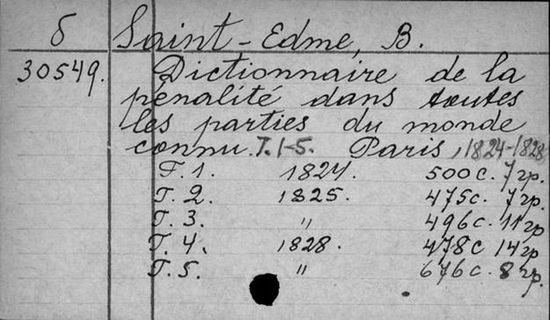 б Saint-Edme, B.
30549. Dictionnaire de la
pénalité dans toutes
les parties du monde
connu. T. 1-5. Paris, 1824-1828
T. 1. 1824. 500 c. 7 гр.
T. 2. 1825. 475 c. 7 гр.
T. 3. " 496 c. 11 гр
T. 4. 1828. 478 c 14 гр
T. 5. " 676 c. 8 гр.